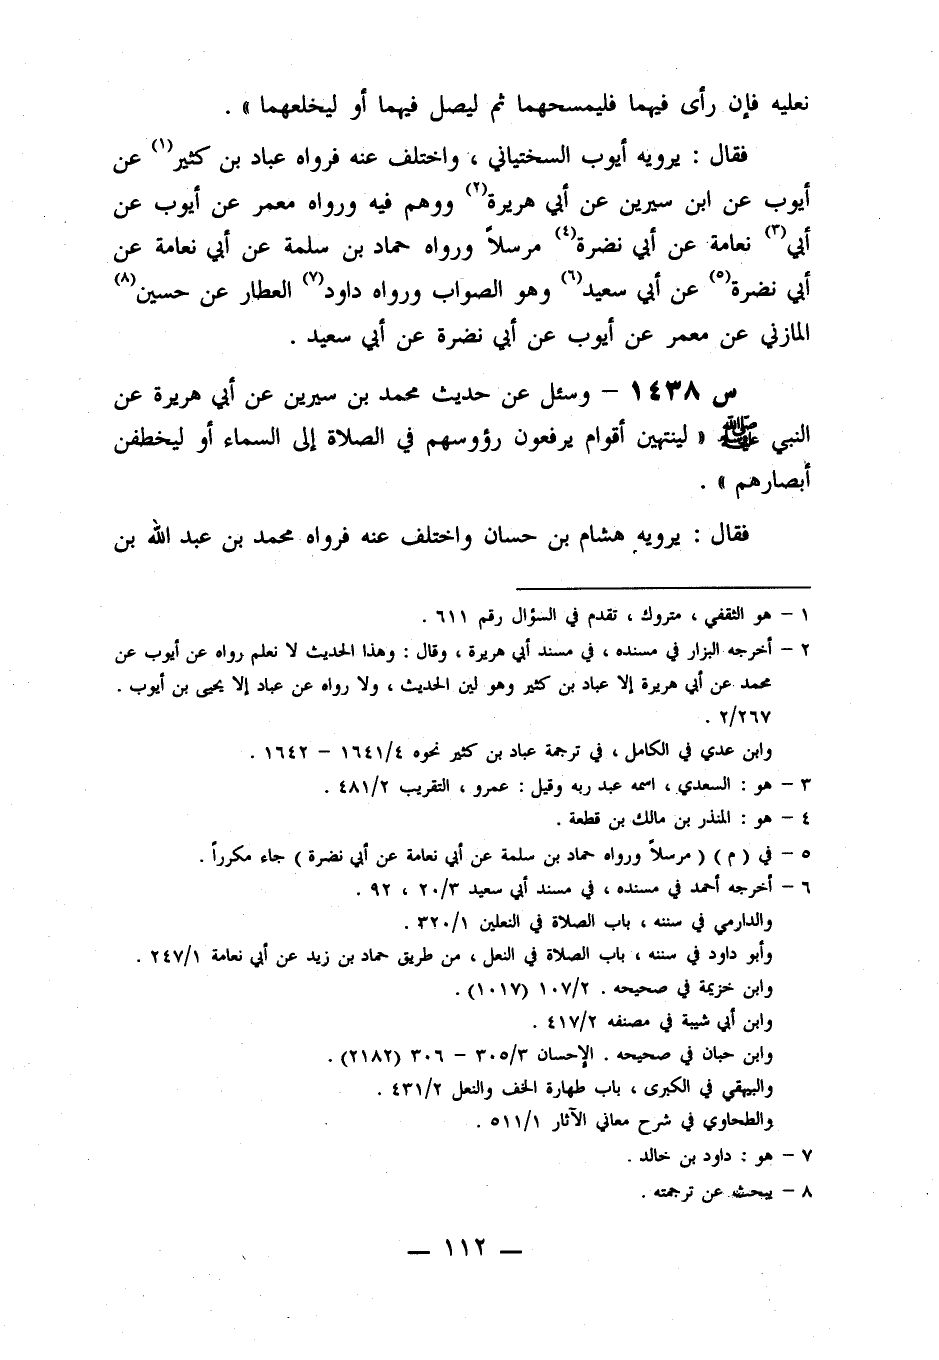 نعليه فإن رأى فيهما فليمسحهما ثم ليصل فيهما أو ليخلعهما » .
فقال : يرويه أيوب السختياني ، واختلف عنه فرواه عباد بن كثير(١) عن
أيوب عن ابن سيرين عن أبي هريرة(٢) ووهم فيه ورواه معمر عن أيوب عن
أبي(٣) نعامة عن أبي نضرة(٤) مرسلاً ورواه حماد بن سلمة عن أبي نعامة عن
أبي نضرة(٥) عن أبي سعيد(٦) وهو الصواب ورواه داود(٧) العطار عن حسين(٨)
المازني عن معمر عن أيوب عن أبي نضرة عن أبي سعيد .
س ١٤٣٨ – وسئل عن حديث محمد بن سيرين عن أبي هريرة عن
النبي ﷺ « لينتهين أقوام يرفعون رؤوسهم في الصلاة إلى السماء أو ليخطفن
أبصارهم » .
فقال : يرويه هشام بن حسان واختلف عنه فرواه محمد بن عبد الله بن
١ – هو الثقفي ، متروك ، تقدم في السؤال رقم ٦١١ .
٢ – أخرجه البزار في مسنده ، في مسند أبي هريرة ، وقال : وهذا الحديث لا نعلم رواه عن أيوب عن
محمد عن أبي هريرة إلا عباد بن كثير وهو لين الحديث ، ولا رواه عن عباد إلا يحيى بن أيوب .
٢/٢٦٧ .
وابن عدي في الكامل ، في ترجمة عباد بن كثير نحوه ١٦٤١/٤ – ١٦٤٢ .
٣ – هو : السعدي ، اسمه عبد ربه وقيل : عمرو ، التقريب ٤٨١/٢ .
٤ – هو : المنذر بن مالك بن قطعة .
٥ – في ( م ) ( مرسلاً ورواه حماد بن سلمة عن أبي نعامة عن أبي نضرة ) جاء مكرراً .
٦ – أخرجه أحمد في مسنده ، في مسند أبي سعيد ٢٠/٣ ، ٩٢ .
والدارمي في سننه ، باب الصلاة في النعلين ٣٢٠/١ .
وأبو داود في سننه ، باب الصلاة في النعل ، من طريق حماد بن زيد عن أبي نعامة ٢٤٧/١ .
وابن خزيمة في صحيحه . ١٠٧/٢ (١٠١٧) .
وابن أبي شيبة في مصنفه ٤١٧/٢ .
وابن حبان في صحيحه . الإحسان ٣٠٥/٣ – ٣٠٦ (٢١٨٢) .
والبيهقي في الكبرى ، باب طهارة الخف والنعل ٤٣١/٢ .
والطحاوي في شرح معاني الآثار ٥١١/١ .
٧ – هو : داود بن خالد .
٨ – يبحث عن ترجمته .
— ١١٢ —